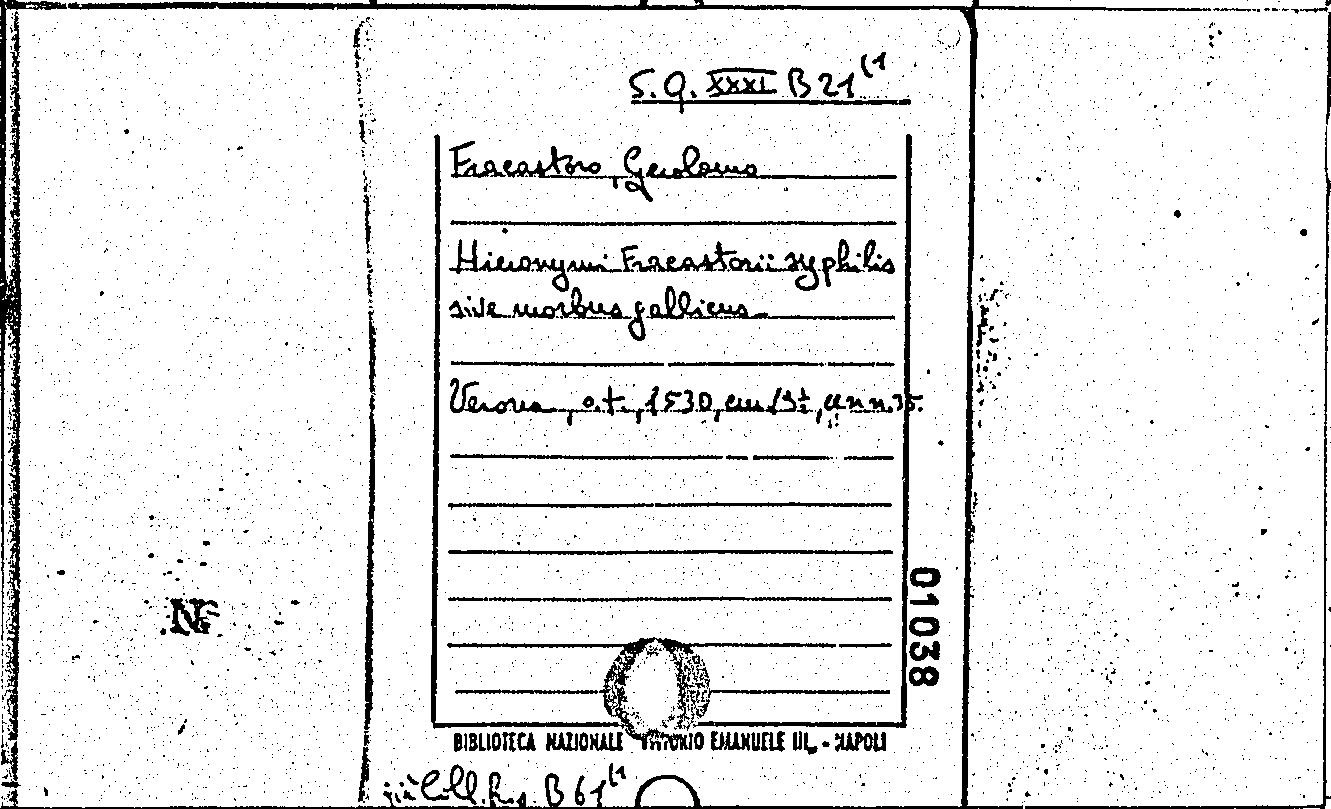 S.Q. XXXI B 21 (1
Fracastoro, Gerolamo
Hieronymi Fracastorii syphilis
sive morbus gallicus.
Verona, s.t., 1530, cm
01038
BIBLIOTECA NAZIONALE VITTORIO EMANUELE III - NAPOLI
già Coll. B 61 (1